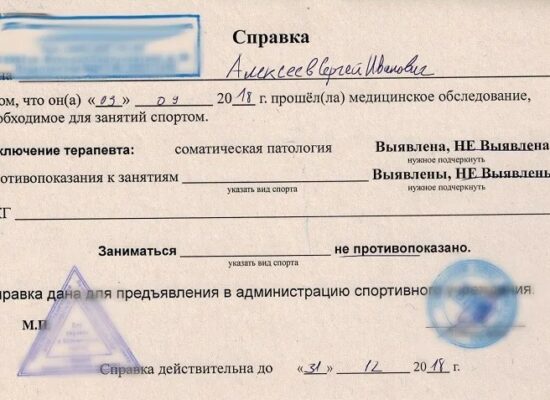 Справка
на Алексеев Сергей Иванович
ом, что он(а) «03» 09 2018 г. прошёл(ла) медицинское обследование,
еобходимое для занятий спортом.
ключение терапевта: соматическая патология Выявлена, НЕ Выявлена
нужное подчеркнуть
отивопоказания к занятиям Выявлены, НЕ Выявлены
указать вид спорта нужное подчеркнуть
КГ
Заниматься не противопоказано.
указать вид спорта
правка дана для предъявления в администрацию спортивного учреждения.
М.П
Справка действительна до «31» 12 2018 г.